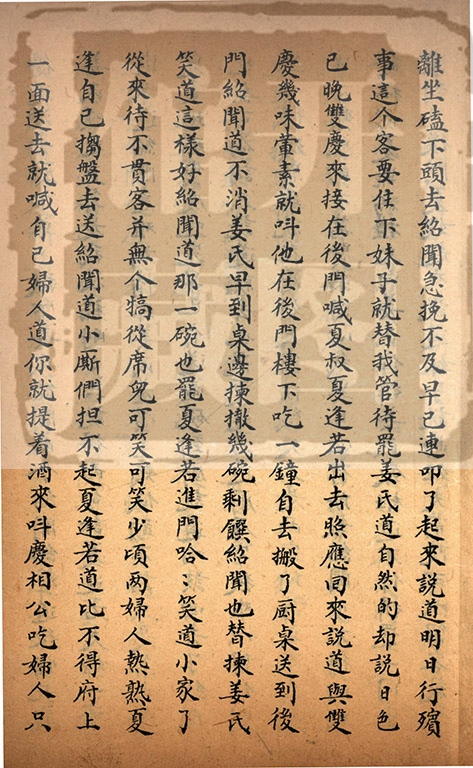 離坐磕下頭去紹聞急挽不及早已連叩了起來說道明日行殯
事這个客要住下妹子就替我管待罷姜氏道自然的却說日色
已晚雙慶來接在後門喊夏叔夏逢若出去照應回來說道與雙
慶幾味葷素就呌他在後門樓下吃一鐘自去搬了厨桌送到後
門紹聞道不消姜氏早到桌邊揀撤幾碗剩饌紹聞也替揀姜氏
笑道這樣好紹聞道那一碗也罷夏逢若進門哈〻笑道小家了
從來待不貫客并無个犒從席兒可笑可笑少頃两婦人熱熱夏
逢自己搊盤去送紹聞道小厮們担不起夏逢若道比不得府上
一面送去就喊自己婦人道你就提着酒來呌慶相公吃婦人只